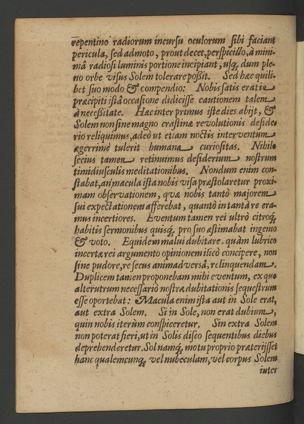 repentino radiorum incursu oculorum sibi faciant
pericula, sed admoto, prout decet, perspicillo, à mini-
mâ radiosi luminis portione incipiant; usq́, dum ple-
no orbe visus Solem tolerare possit. Sed hæc quili-
bet suo modo & compendio: Nobis satis erat re
præcipiti istâ occasione didicisse cautionem talem
à necessitate. Hæc inter primus iste dies abijt, &
Solem non sine magno crastinæ revolutionis deside-
rio reliquimus, adeò ut etiam noctis interventum
ægerrimè tulerit humana curiositas. Nihilo
secius tamen retinuimus desiderium nostrum
timidiusculis meditationibus. Nondum enim con-
stabat, an macula ista nobis visa præstolaretur proxi-
mam observationem, quæ nobis tantò majorem
sui expectationem afferebat, quantò in tantâ re era-
mus incertiores. Eventum tamen rei ultrò citroq́,
habitis sermonibus quisq́, pro suo æstimabat ingenio
& voto. Equidem malui dubitare, quàm lubrico
incerta rei argumento opinionem ilicò concipere, non
sine pudore, re secus animadversâ, relinquendam.
Duplicem tamen proponebam mihi eventum, ex quo
alterutrum necessariò nostræ dubitationis sequestrum
esse oportebat: Macula enim ista aut in Sole erat,
aut extra Solem. Si in Sole, non erat dubium,
quin nobis iterùm conspiceretur. Sin extra Solem
non poterat fieri, ut in Solis disco sequentibus diebus
deprehenderetur. Sol namq́, motu proprio præterijsset
hanc qualemcunq́, vel nubeculam, vel corpus Solem
inter